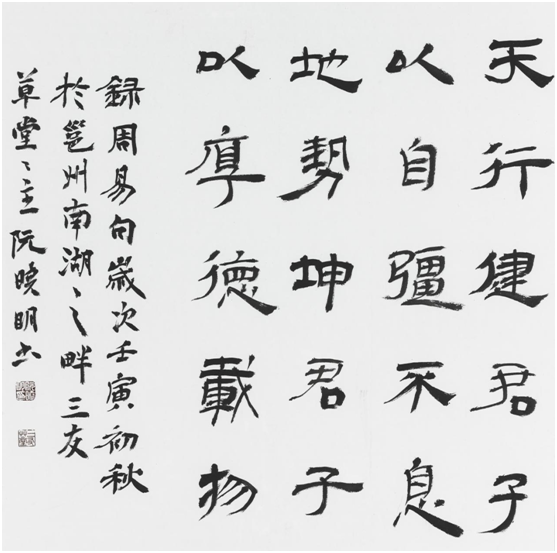 天行健君子
以自彊不息
地勢坤君子
以厚德載物
録周易句歲次壬寅初秋
於邕州南湖〻之畔三友
草堂〻主阮曉明书